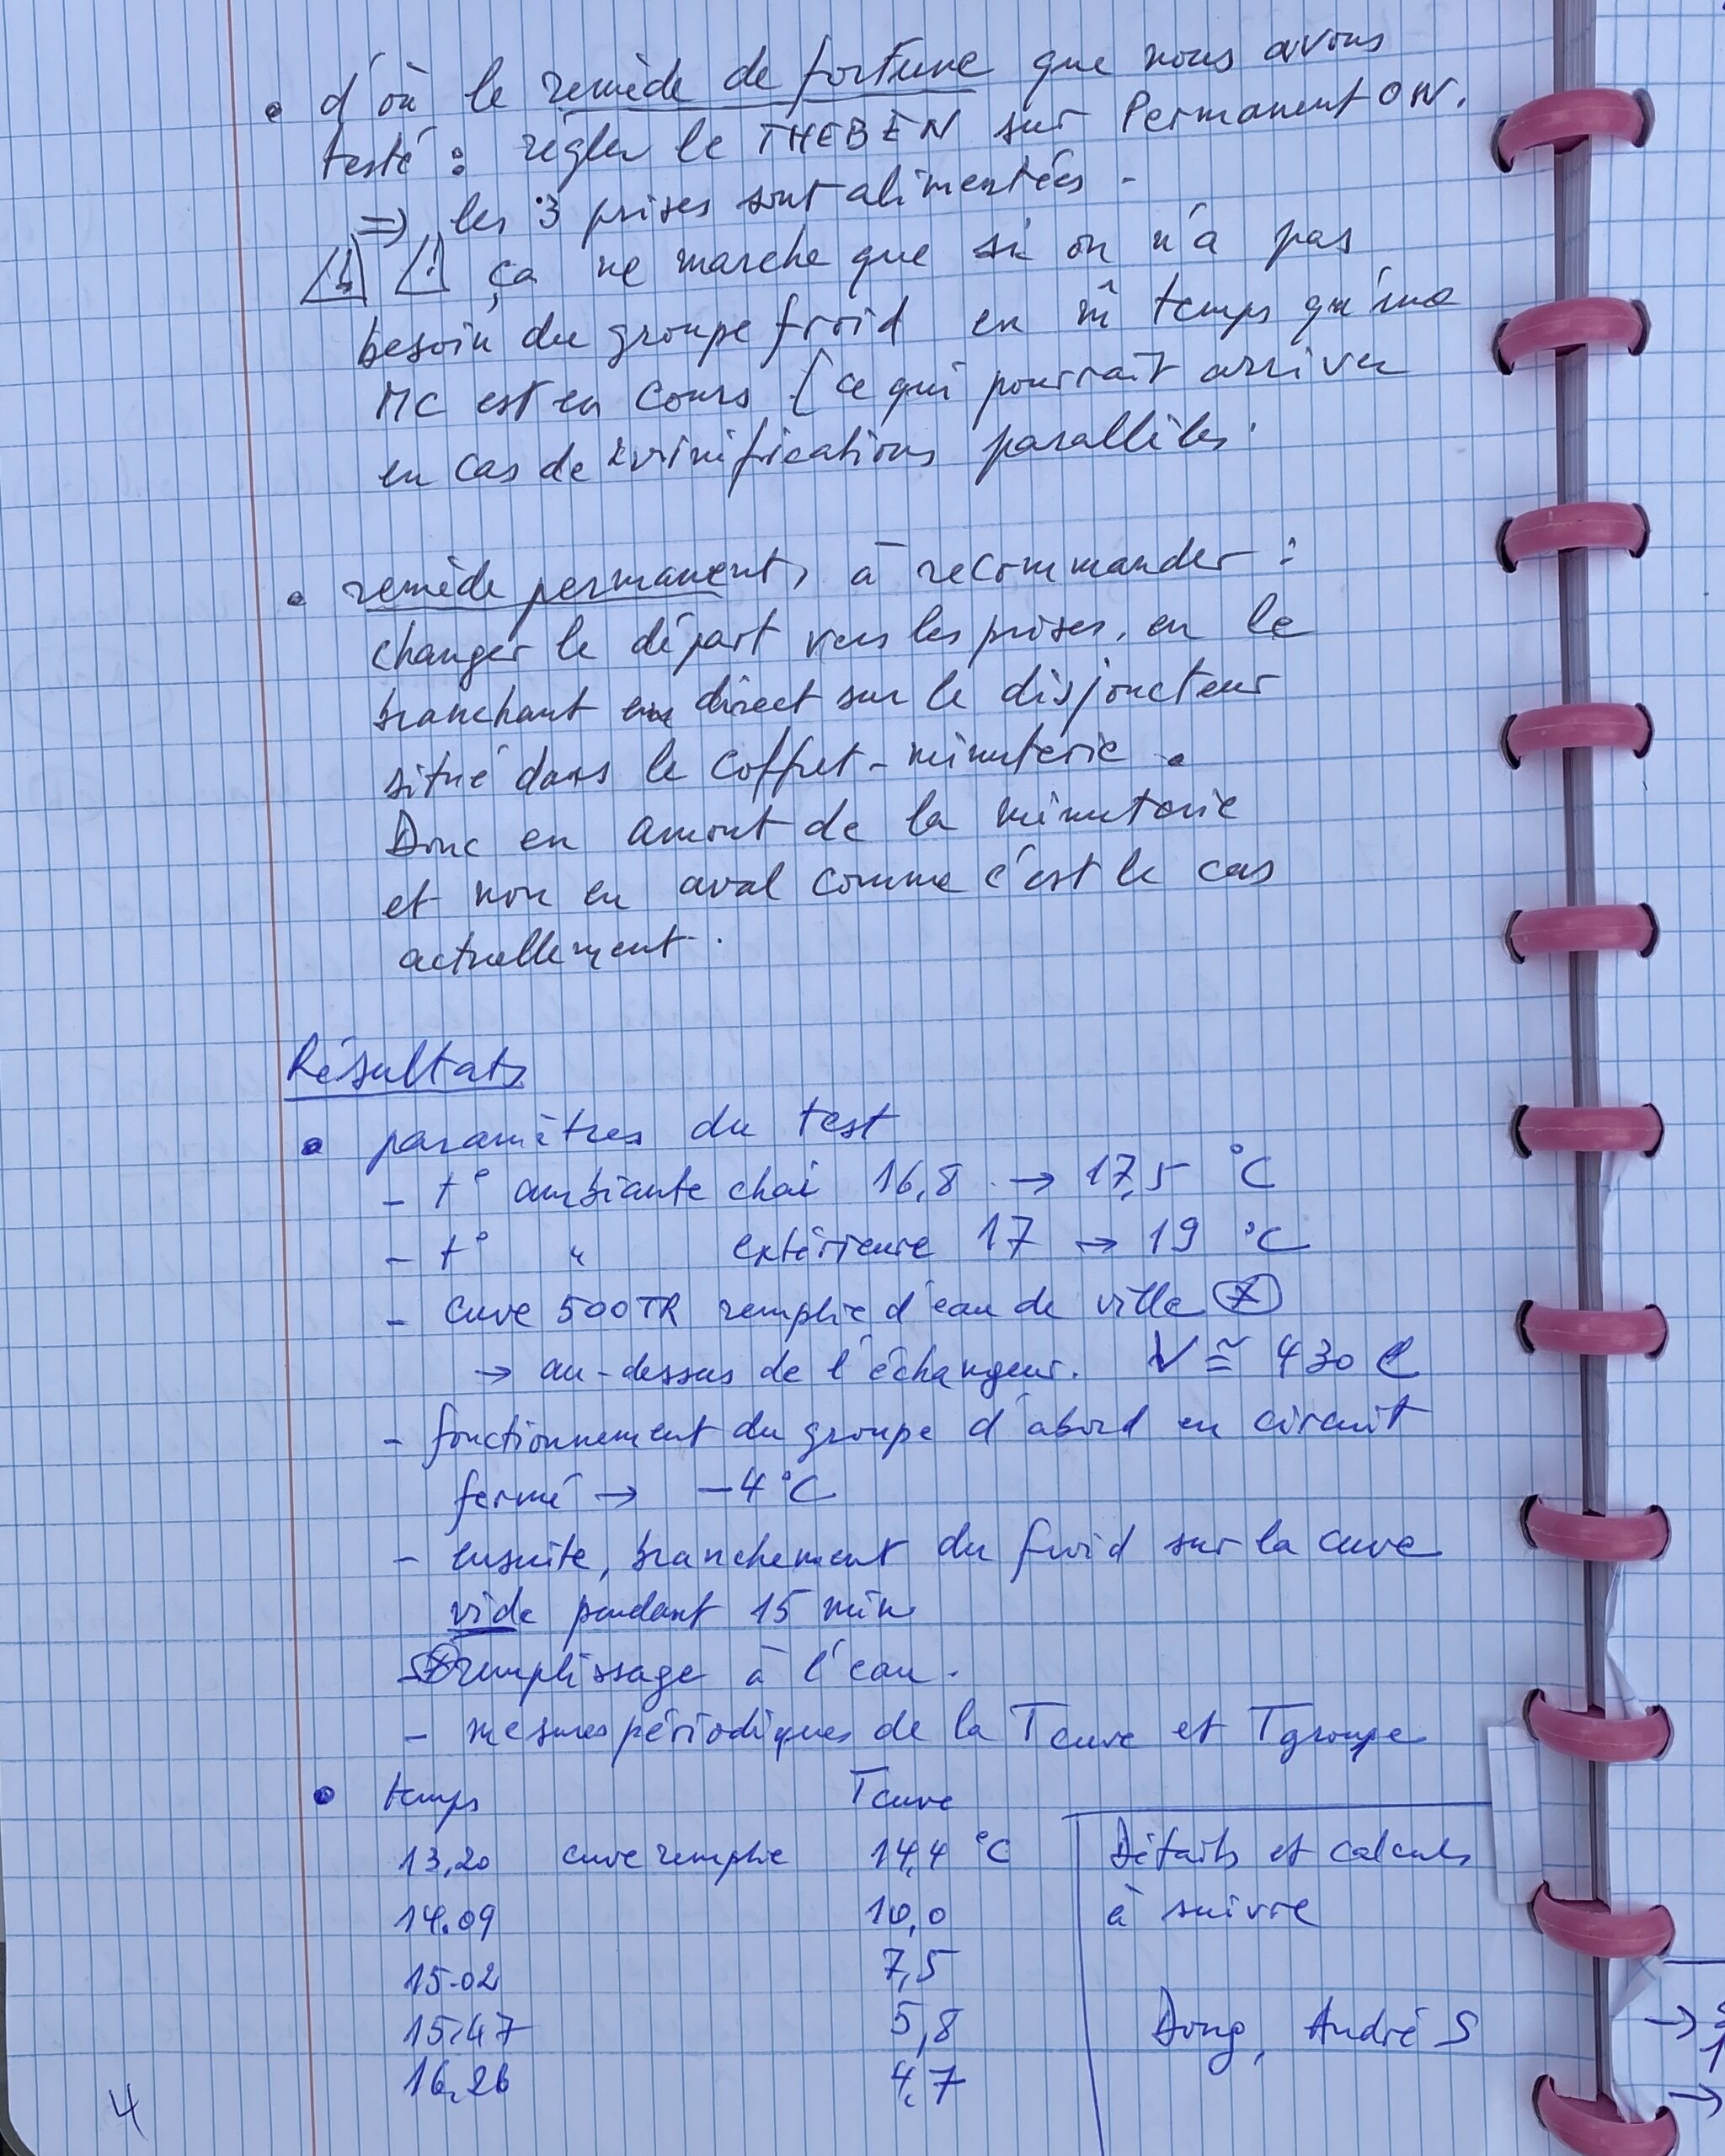 • d'où le remède de fortune que nous avons
testé : régler le THEBEN sur Permanent ON.
=> les 3 prises sont alimentées.
ça ne marche que si on n'a pas
besoin du groupe froid en m̂ temps qu'une
MC est en cours (ce qui pourrait arriver
en cas de 2 vinifications parallèles.
• remède permanent, à recommander :
changer le départ vers les prises, en le
branchant en direct sur le disjoncteur
situé dans le coffret-minuterie.
Donc en amont de la minuterie
et non en aval comme c'est le cas
actuellement.
Résultats
• paramètres du test
- t° ambiante chai 16,8 → 17,5 °C
- t° " extérieure 17 → 19 °C
- cuve 500TR remplie d'eau de ville (*)
→ au-dessus de l'échangeur. V ≅ 430 l
- fonctionnement du groupe d'abord en circuit
fermé → -4°C
- ensuite, branchement du froid sur la cuve
vide pendant 15 min
(*) remplissage à l'eau.
- mesures périodiques de la Tcuve et Tgroupe
• temps Tcuve
13,20 cuve remplie 14,4 °C
14.09 10,0
15-02 7,5
15.47 5,8
16.26 4,7
Détails et calculs
à suivre
Doug, André S
4